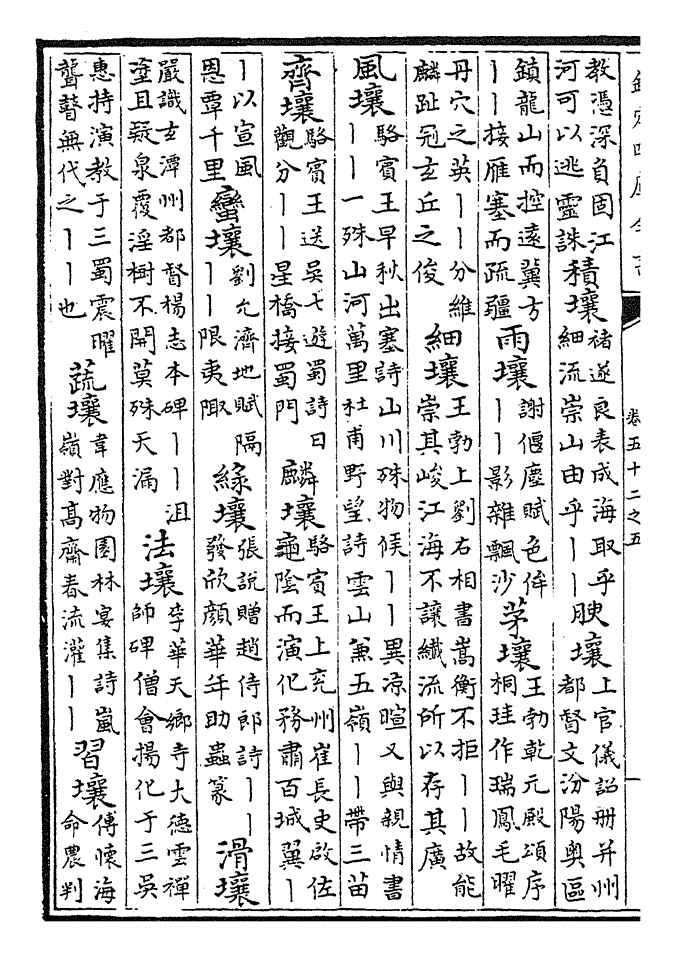 欽定四庫全書
卷五十二之五
教憑深負固江
河可以逃靈誅
積壤
褚遂良表成海取乎
細流崇山由乎丨丨
腴壤
上官儀詔册并州
都督文汾陽奧區
鎮龍山而控遠冀方
丨丨接雁塞而疏疆
雨壤
謝偃塵賦色侔
丨丨影雜飄沙
茅壤
王勃乾元殿頌序
桐珪作瑞鳳毛曜
丹穴之英丨丨分維
麟趾冠玄丘之俊
細壤
王勃上劉右相書嵩衡不拒丨丨故能
崇其峻江海不讓纖流所以存其廣
風壤
駱賓王早秋出塞詩山川殊物候丨丨異凉暄又與親情書
丨丨一殊山河萬里杜甫野望詩雲山兼五嶺丨丨帶三苗
齊壤
駱賓王送吳七遊蜀詩日
觀分丨丨星橋接蜀門
麟壤
駱賓王上兖州崔長史啟佐
龜陰而演化務肅百城翼丨
丨以宣風
恩覃千里
蠻壤
劉允濟地賦隔
丨丨限夷陬
緣壤
張說贈趙侍郎詩丨丨
發欣顔華年助蟲篆
滑壤
嚴識玄潭州都督楊志本碑丨丨沮
塗且疑泉覆淫樹不開莫殊天漏
法壤
李華天鄉寺大德雲禪
師碑僧會揚化于三吳
惠持演教于三蜀震曜
聾瞽無代之丨丨也
蔬壤
韋應物園林宴集詩嵐
嶺對高齋春流灌丨丨
習壤
傅懷海
命農判